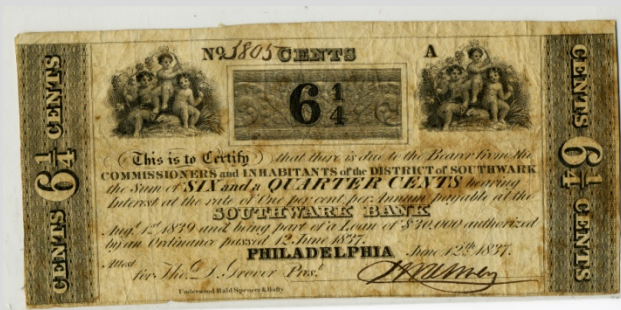 No 5805 CENTS A
6 1/4
CENTS 6 1/4 CENTS
CENTS 6 1/4 CENTS
This is to Certify that there is due to the Bearer from the
COMMISSIONERS and INHABITANTS of the DISTRICT of SOUTHWARK
the Sum of SIX and a QUARTER CENTS bearing
Interest at the rate of One per cent. per Annum payable at the
SOUTHWARK BANK
Augt. 1st 1839 and being part of a Loan of $30,000 authorized
by an Ordinance passed 12 June 1837.
PHILADELPHIA June 12th 1837.
Attest
for Tho. D. Grover Prest.
Underwood Bald Spencer & Hufty